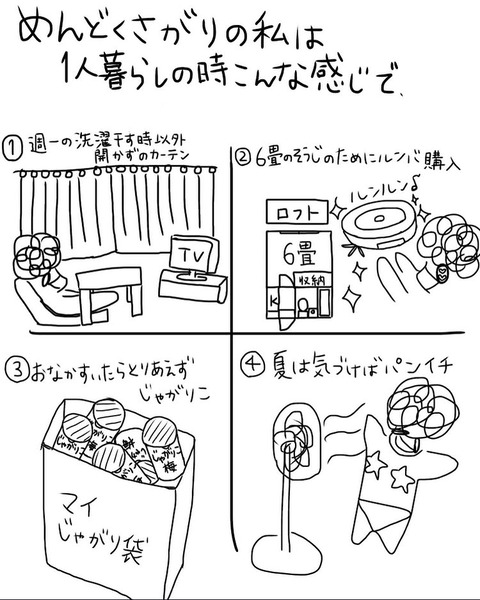 めんどくさがりの私は
1人暮らしの時こんな感じで、
① 週一の洗濯干す時以外
開かずのカーテン
TV
② 6畳のそうじのためにルンバ購入
ルンルン♪
ロフト
6畳
収納
K
③ おなかすいたらとりあえず
じゃがりこ
がりこ
じゃがりこ
じゃがりこ
梅
マイ
じゃがり袋
④ 夏は気づけばパンイチ